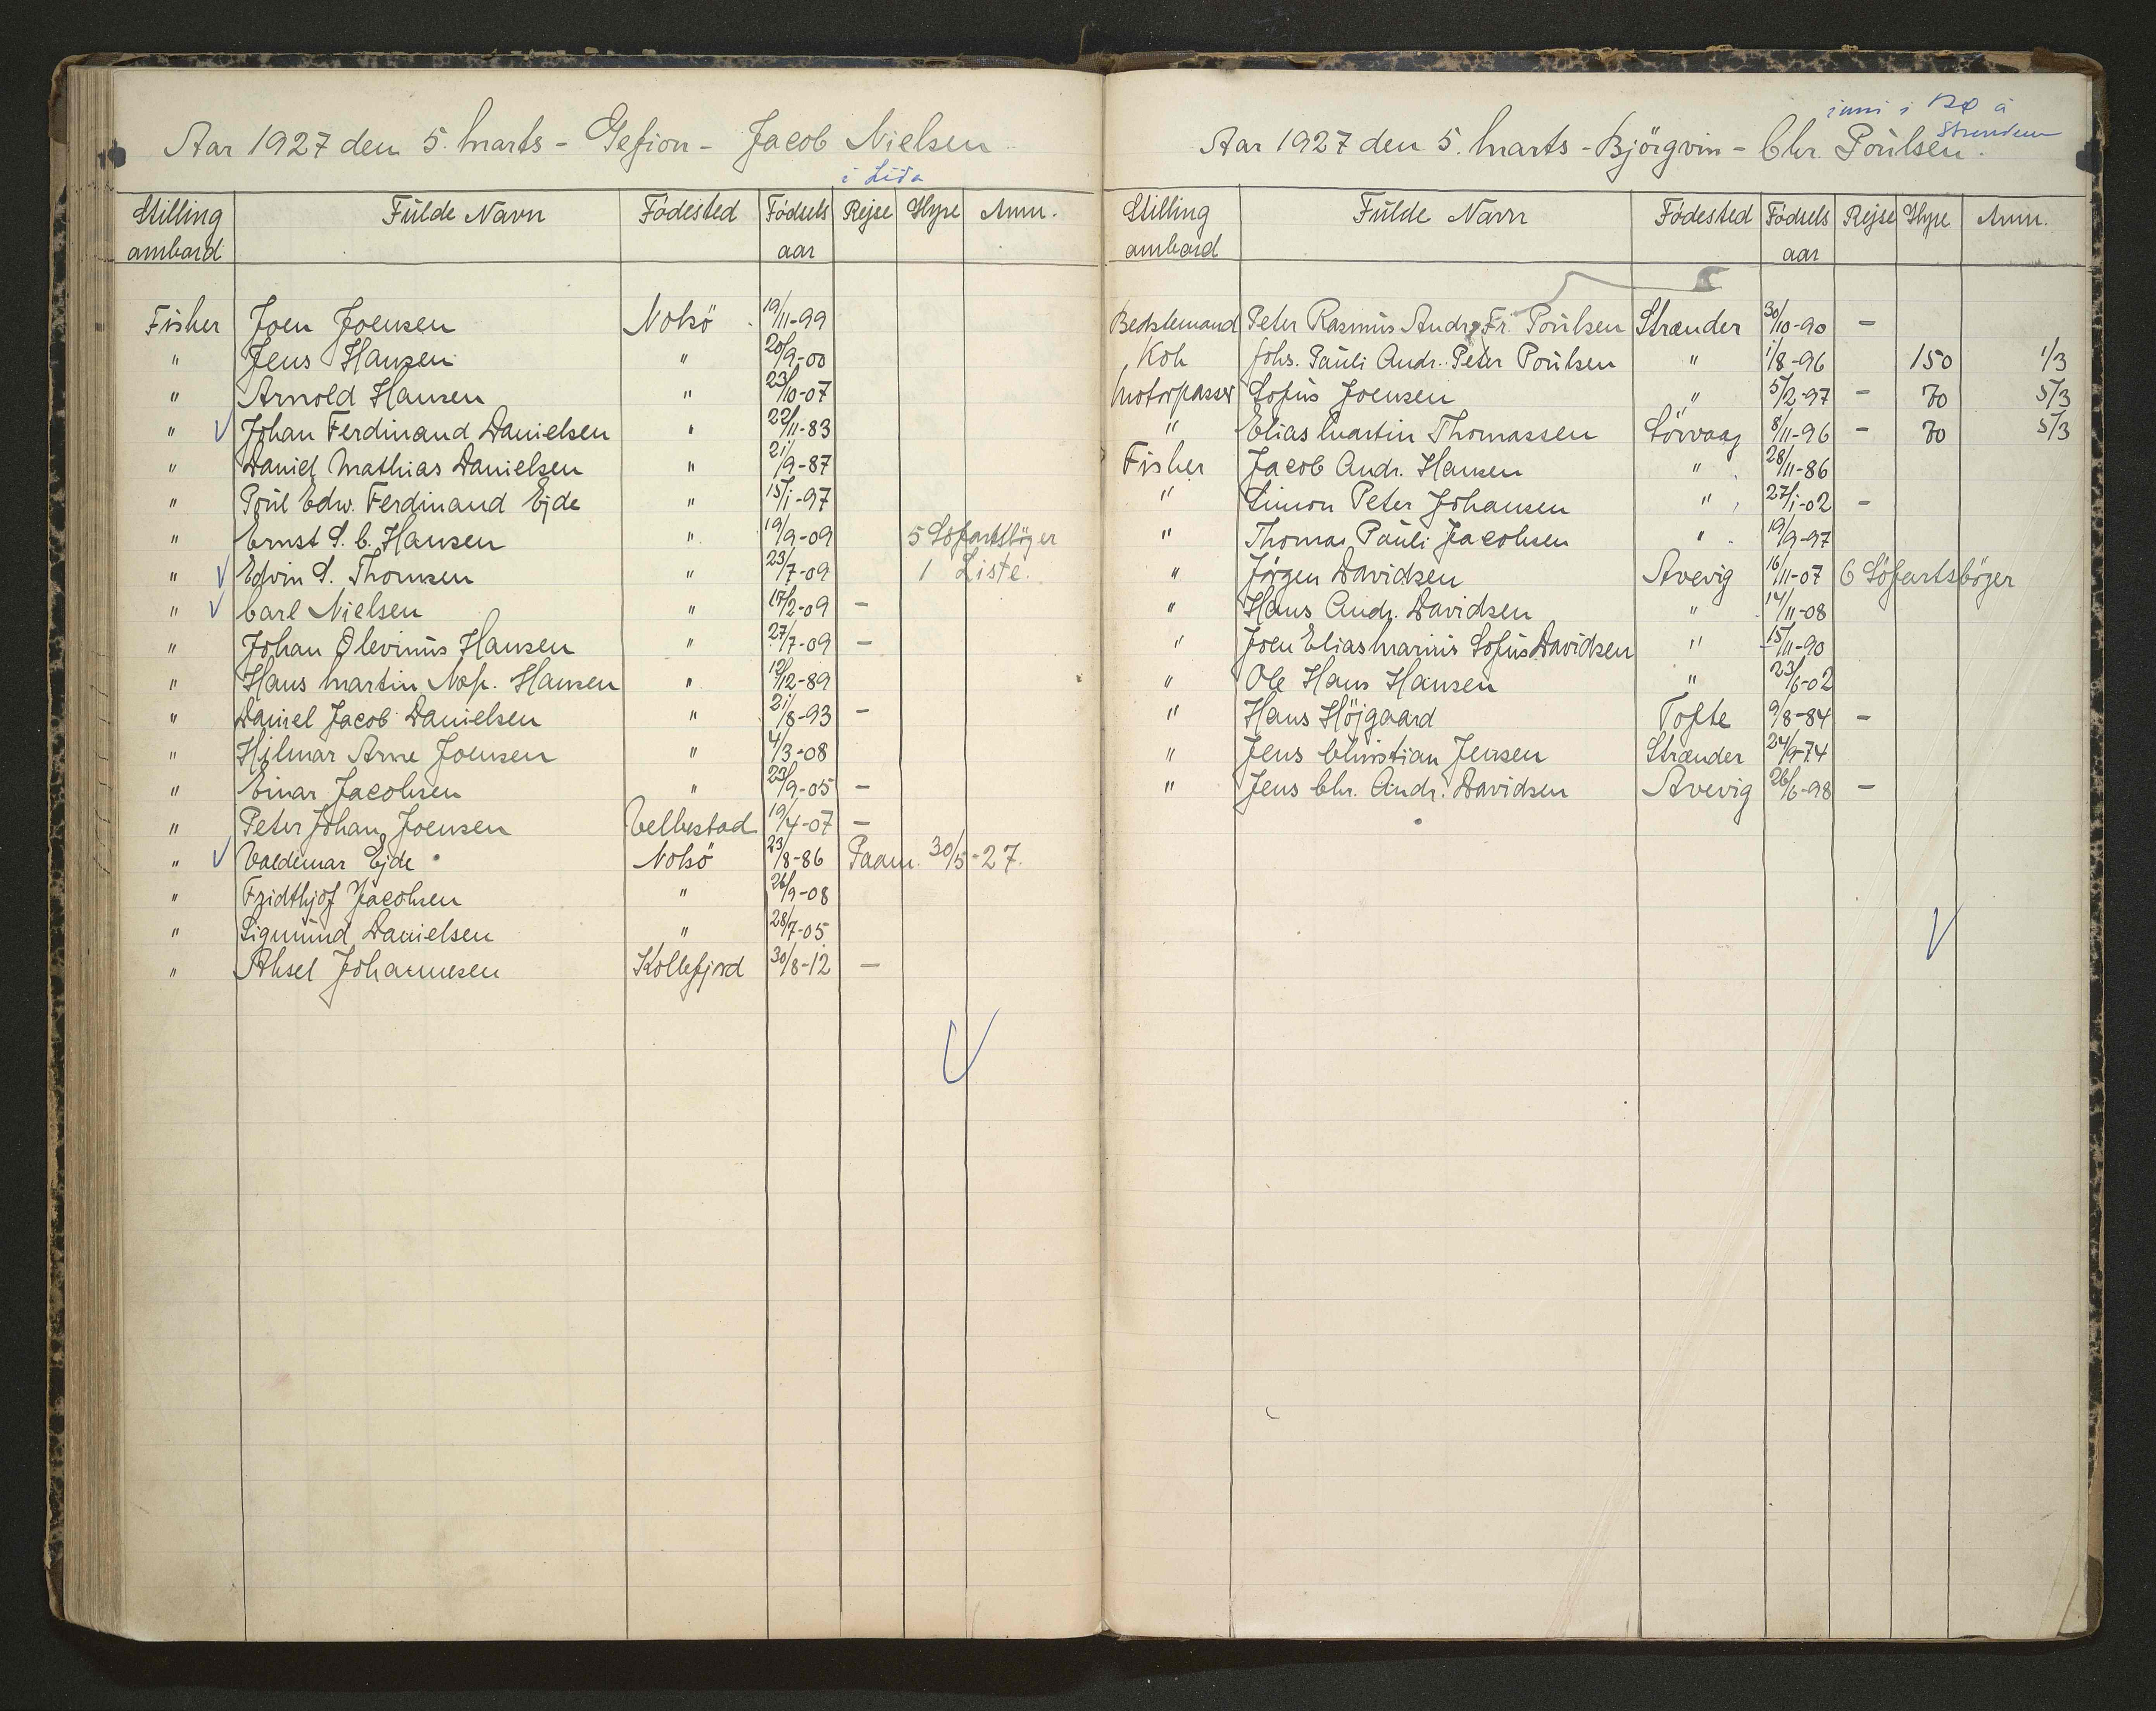 Aar 1927 den 5. Marts - Gefion - Jacob Nielsen
i Lida
Stilling ombord Fulde Navn Födested Födsels aar Rejse Hyre Anm.
Fisker Joen Joensen Nolsö 19/11-99
" Jens Hansen " 20/9-00
" Arnold Hansen " 23/10-07
" V Johan Ferdinand Danielsen " 22/11-83
" Daniel Mathias Danielsen " 21/9-87
" Poul Edw. Ferdinand Ejde " 15/1-97
" Ernst S. C. Hansen " 19/9-09 5 Söfartsböger
" V Edvin S. Thomsen " 23/7-09 1 Liste.
" V Carl Nielsen " 17/2-09 -
" Johan Olevinus Hansen " 27/7-09 -
" Hans Martin Nap. Hansen " 19/12-89
" Daniel Jacob Danielsen " 21/8-93 -
" Hilmar Arne Joensen " 4/3-08
" Einar Jacobsen " 23/9-05 -
" Peter Johan Joensen Velbestad 19/4-07 -
" V Valdemar Ejde Nolsö 23/8-86 Paam. 30/5-27.
" Fridthjof Jacobsen " 26/9-08
" Sigmund Danielsen " 28/7-05
" Aksel Johannesen Kollefjord 30/8-12 -
V
inni i Bø á
Strondum
Aar 1927 den 5. Marts - Björgvin - Chr. Poulsen.
Stilling ombord Fulde Navn Födested Födsels aar Rejse Hyre Anm.
Bedstemand Peter Rasmus Andr. Fr. Poulsen Strænder 30/10-90 -
Kok Johs. Pauli Andr. Peter Poulsen " 1/8-96 150 1/3
Motorpasser Sofus Joensen " 5/2-97 - 70 5/3
" Elias Martin Thomassen Sörvaag 8/11-96 - 70 5/3
Fisker Jacob Andr. Hansen " 28/11-86
" Simon Peter Johansen " 27/1-02 -
" Thomas Pauli Jacobsen " 19/9-97
" Jörgen Davidsen Avevig 16/11-07 6 Söfartsböger
" Hans Andr. Davidsen " 14/11-08
" Joen Elias Marius Sofus Davidsen " 15/11-90
" Ole Hans Hansen " 23/6-02
" Hans Höjgaard Tofte 9/8-84 -
" Jens Christian Jensen Strænder 24/9-74
" Jens Chr. Andr. Davidsen Avevig 26/6-98 -
V